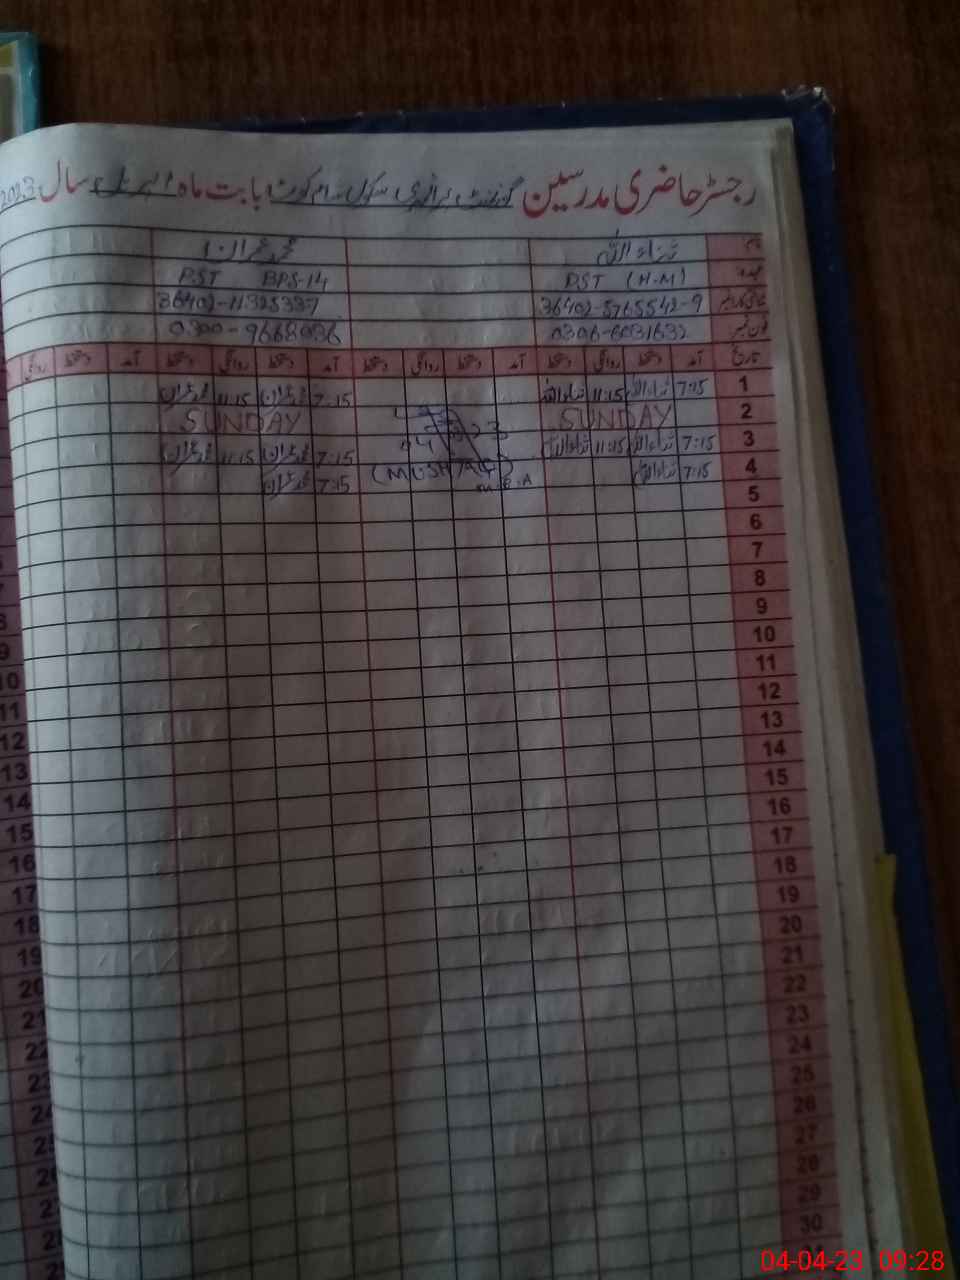 رجسٹر حاضری مدرسین گورنمنٹ پرائمری سکول بابت ماہ اپریل سال 2023
نام ثناء اللہ محمد عمران
عہدہ PST (H.M) PST BPS-14
36402-5765542-9 36402-11325337
فون نمبر 0306-6031632 0300-9668036
تاریخ آمد دستخط روانگی دستخط آمد دستخط روانگی دستخط آمد دستخط روانگی دستخط آمد دستخط روانگی
1 7:15 ثناء اللہ 11:15 ثناء اللہ 7:15 محمد عمران 11:15 محمد عمران
2 SUNDAY SUNDAY
3 7:15 ثناء اللہ 11:15 ثناء اللہ 7:15 محمد عمران 11:15 محمد عمران
4 7:15 ثناء اللہ (MUSHTAQ) 7:15 محمد عمران
5
6
7
8
9
10
11
12
13
14
15
16
17
18
19
20
21
22
23
24
25
26
27
28
29
30
04-04-23 09:28